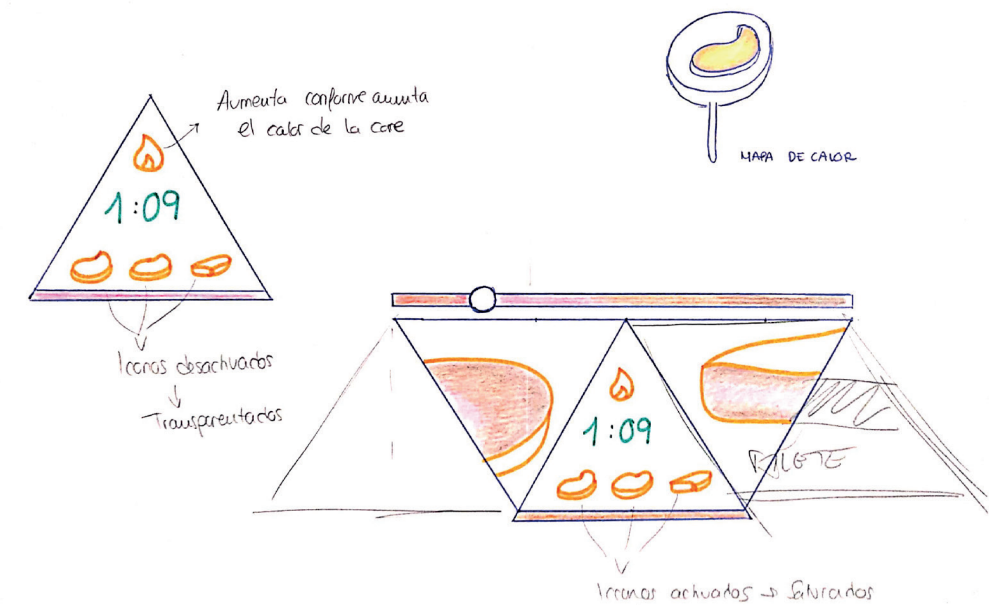 Aumenta conforme aumta
el calor de la care
1:09
MAPA DE CALOR
Iconos desactivados
Transparentados
1:09
FILETE
Iconos activados → Saturados